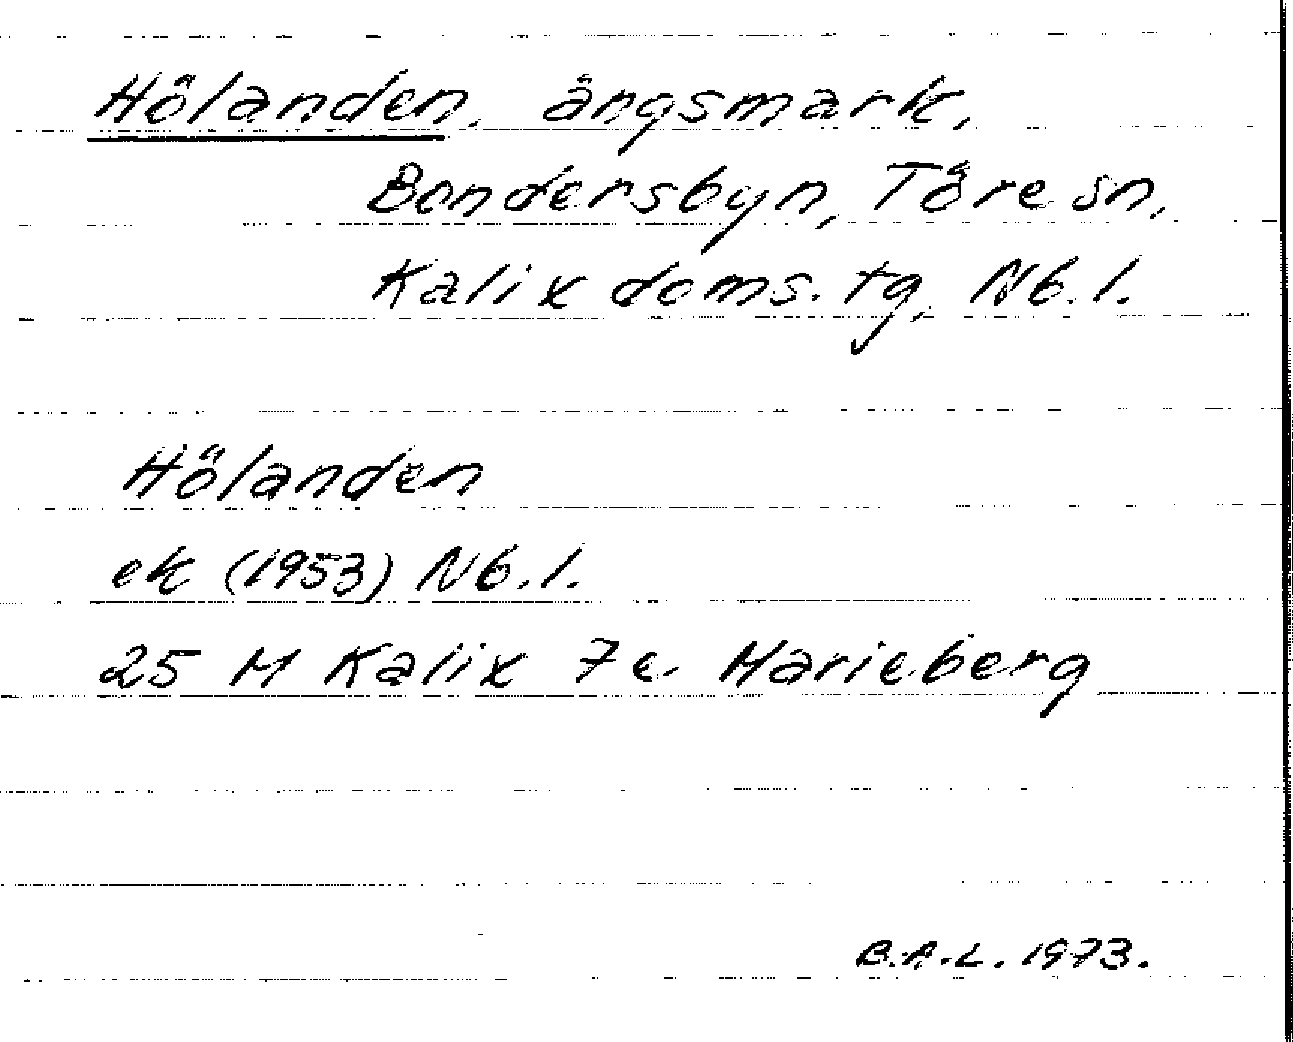 Hölanden, ängsmark,
Bondersbyn, Töre sn,
Kalix doms. tg, Nb. l.
Hölanden
ek (1953) Nb. l.
25 M Kalix 7 c. Marieberg
B.A.L. 1973.